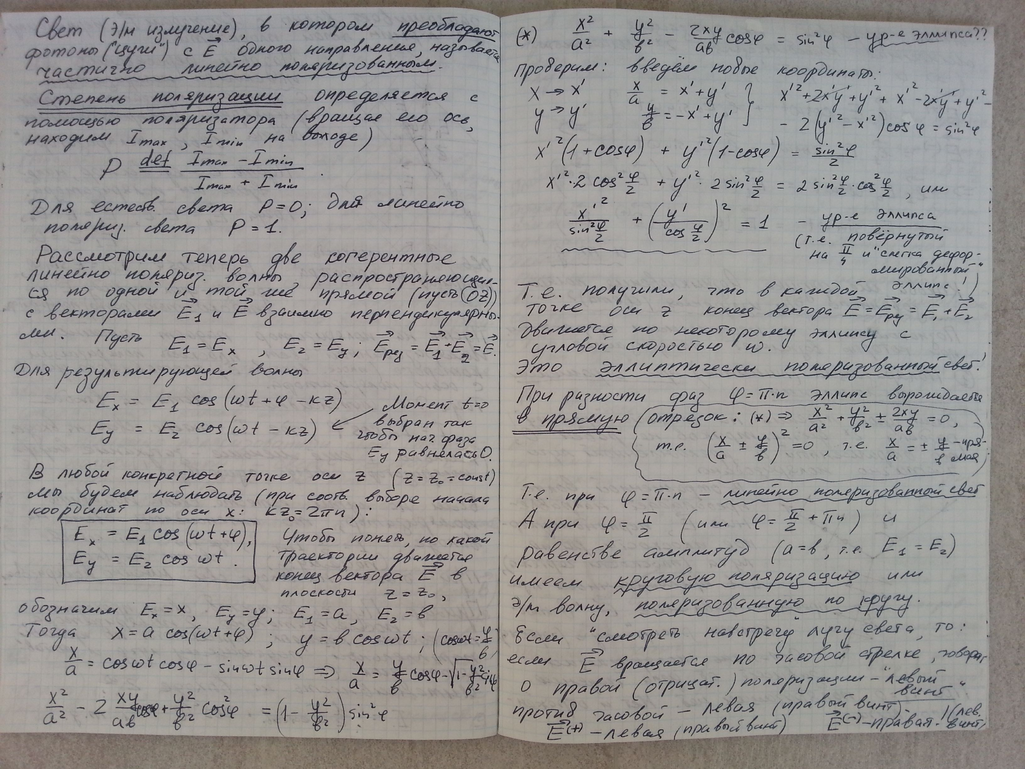 Свет (э/м излучение), в котором преобладают
фотоны ("цуги") с E⃗ одного направления, называе
частично линейно поляризованным.
Степень поляризации определяется с
помощью поляризатора (вращая его ось,
находим Imax, Imin на выходе)
P def (Imax − Imin)/(Imax + Imin)
Для естеств. света P=0; для линейно
поляриз. света P=1.
Рассмотрим теперь две когерентные
линейно поляриз. волны, распространяющи-
ся по одной и той же прямой (пусть OZ)
с векторами E⃗₁ и E⃗ взаимно перпендикулярны-
ми. Пусть E₁=Eₓ , E₂=Eᵧ; E⃗рез=E⃗₁+E⃗₂=E⃗.
Для результирующей волны
Eₓ = E₁ cos(ωt+φ−kz)
Eᵧ = E₂ cos(ωt−kz)
Момент t=0
выбран так
чтобы нач. фаза
Eᵧ равнялась 0.
В любой конкретной точке оси z (z=z₀=const)
мы будем наблюдать (при соотв. выборе начала
координат по оси x: kz₀=2πn):
Eₓ = E₁ cos(ωt+φ),
Eᵧ = E₂ cos ωt.
Чтобы понять, по какой
траектории движется
конец вектора E⃗ в
плоскости z=z₀,
обозначим Eₓ=x, Eᵧ=y; E₁=a, E₂=b
Тогда x=a cos(ωt+φ); y=b cosωt; (cosωt=y/b)
x/a = cosωt cosφ − sinωt sinφ ⇒ x/a = y/b cosφ − √(1−y²/b²) sinφ
x²/a² − 2 xy/ab cosφ + y²/b² cos²φ = (1−y²/b²) sin²φ
(*) x²/a² + y²/b² − 2xy/ab cosφ = sin²φ − ур-е эллипса??
Проверим: введём новые координаты:
x → x' x/a = x'+y' } x'²+2x'y'+y'² + x'²−2x'y'+y'²−
y → y' y/b = −x'+y' − 2(y'²−x'²)cosφ = sin²φ
x'²(1+cosφ) + y'²(1−cosφ) = sin²φ/2
x'²·2cos²φ/2 + y'²·2sin²φ/2 = 2sin²φ/2·cos²φ/2 , или
x'²/sin²φ/2 + (y'/cosφ/2)² = 1 − ур-е эллипса
(т.е. повёрнутый
на π/4 и "слегка дефор-
мированный"
эллипс!)
Т.е. получили, что в каждой
точке оси z конец вектора E⃗=E⃗рез=E⃗₁+E⃗₂
движется по некоторому эллипсу с
угловой скоростью ω.
Это эллиптически поляризованный свет!
При разности фаз φ=π·n эллипс вырождается
в прямую (отрезок: (*) ⇒ x²/a²+y²/b² ± 2xy/ab = 0,
т.е. (x/a ± y/b)²=0, т.е. x/a = ± y/b − пря-
мая
Т.е. при φ=π·n − линейно поляризованный свет
А при φ=π/2 (или φ=π/2+πn) и
равенстве амплитуд (a=b, т.е. E₁=E₂)
имеем круговую поляризацию или
э/м волну, поляризованную по кругу.
Если "смотреть навстречу" лучу света, то:
если E⃗ вращается по часовой стрелке, говорят
о правой (отрицат.) поляризации − "левый
винт"
против часовой − левая (правый винт)
E⃗⁽⁺⁾ − левая (правый винт) E⃗⁽⁻⁾ − правая (лев.
винт.